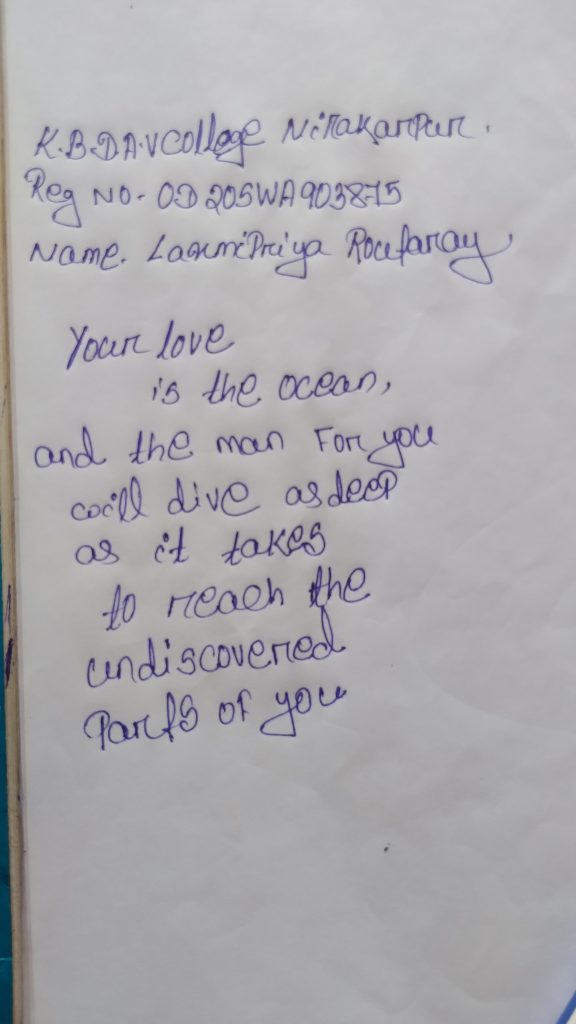 K.B.D.A.V College Nirakarpur.
Reg No- OD20SWA903875
Name. LaxmiPriya Routaray
Your love
is the ocean,
and the man For you
will dive as deep
as it takes
to reach the
undiscovered
Parts of you